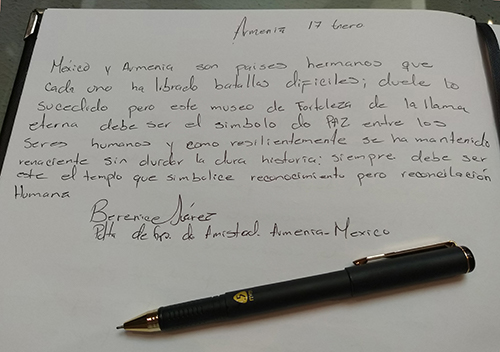 Armenia 17 Enero
México y Armenia son países hermanos que
cada uno ha librado batallas difíciles; duele lo
sucedido pero este museo de Fortaleza de la llama
eterna debe ser el simbolo de PAZ entre los
seres humanos y como resilientemente se ha mantenido
renaciente sin olvidar la dura historia; siempre debe ser
este el templo que simbolice reconocimiento pero reconciliación
Humana
Berenice Juárez
Pdta de Gpo. de Amistad Armenia-Mexico